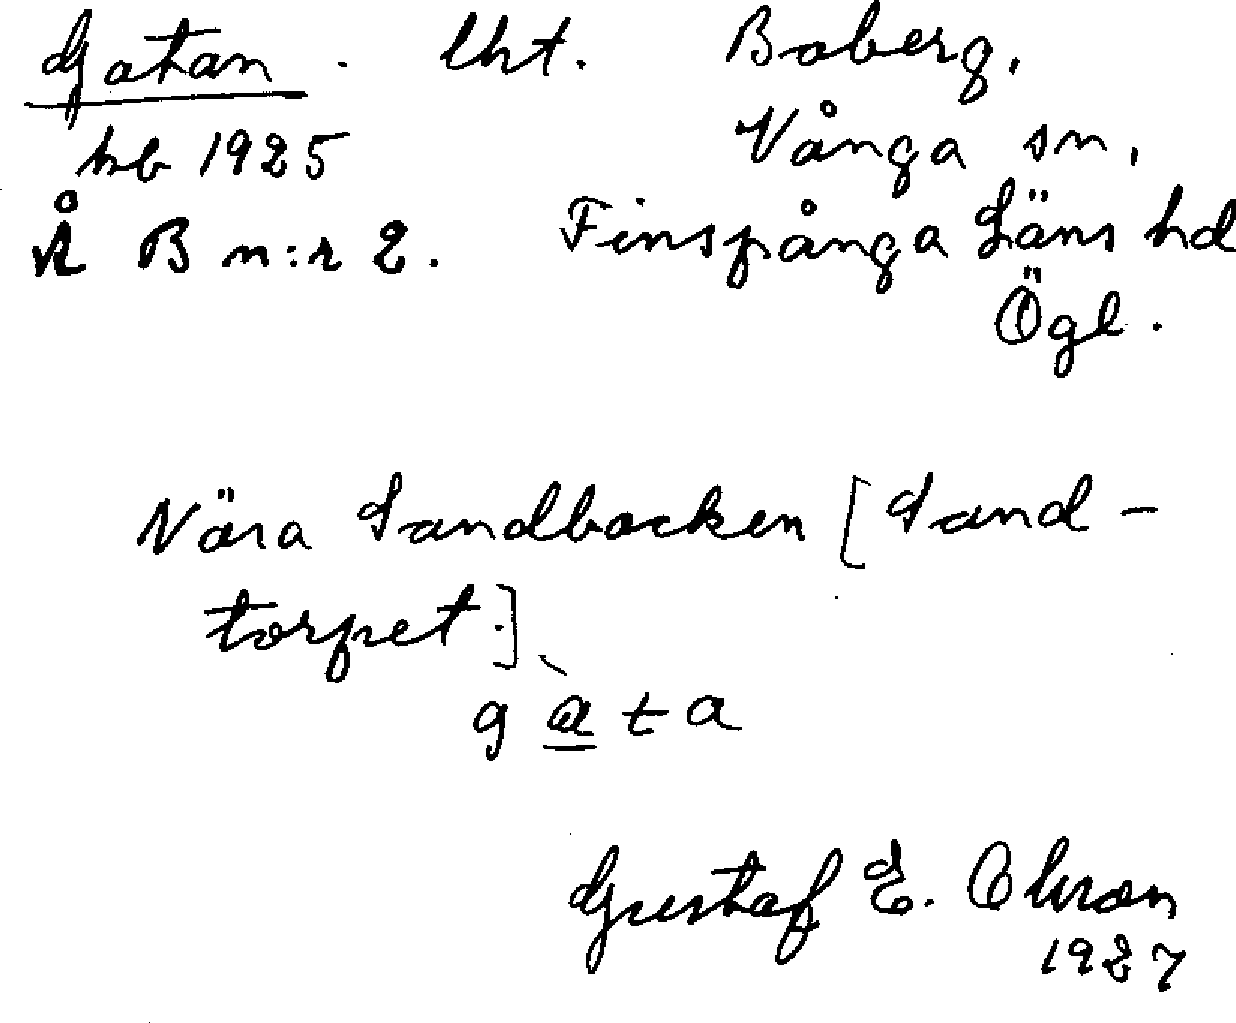 Gatan. lht. Boberg,
hb 1925 Vånga sn,
Å B n:r 2. Finspånga Läns hd
Ögl.
Nära Sandbacken [Sand-
torpet.]
g a t a
Gustaf E. Olsson
1927